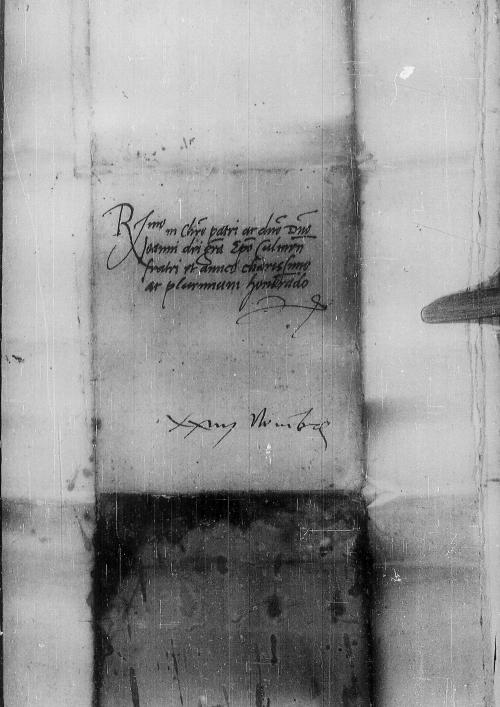 R^mo in Chr̃o patri ac dño Dño
Joanni dei gr̃a Ep̃o Culmeñ
fratri et amico charissimo
ac plurimum honorãdo
xxiiij Novembr